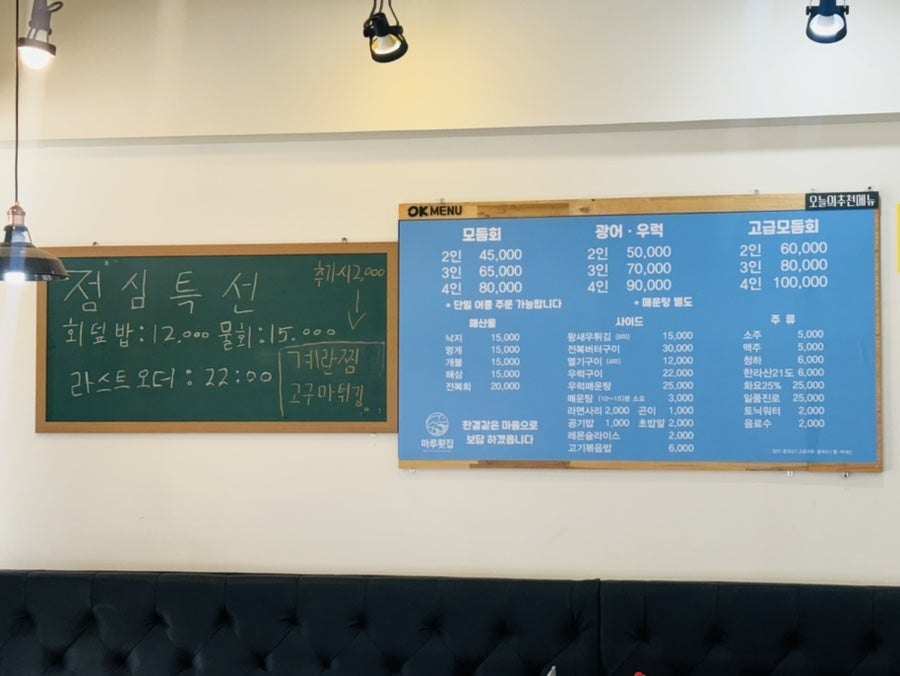 점심특선
추가시 2,000
회덮밥:12.000 물회:15.000
계란찜
고구마튀김
라스트오더:22:00
OK MENU
오늘의추천메뉴
모둠회
2인 45,000
3인 65,000
4인 80,000
* 단일 어종 주문 가능합니다
광어·우럭
2인 50,000
3인 70,000
4인 90,000
* 매운탕 별도
고급모듬회
2인 60,000
3인 80,000
4인 100,000
해산물
낙지 15,000
멍게 15,000
개불 15,000
해삼 15,000
전복회 20,000
사이드
왕새우튀김 15,000
전복버터구이 30,000
열기구이 12,000
우럭구이 22,000
우럭매운탕 25,000
매운탕 (10~15)분 소요 3,000
라면사리 2,000 곤이 1,000
공기밥 1,000 초밥알 2,000
레몬슬라이스 2,000
고기볶음밥 6,000
주류
소주 5,000
맥주 5,000
청하 6,000
한라산21도 6,000
화요25% 25,000
일품진로 25,000
토닉워터 2,000
음료수 2,000
마루횟집
한결같은 마음으로
보답 하겠습니다